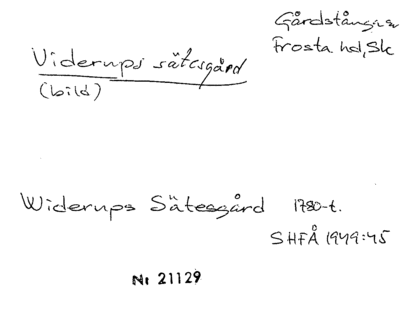 Gårdstånga sn
Frosta hd, Sk
Viderups sätesgård
(bild)
Widerups Sätesgård 1780-t.
SHFÅ 1949:45
Nr 21129